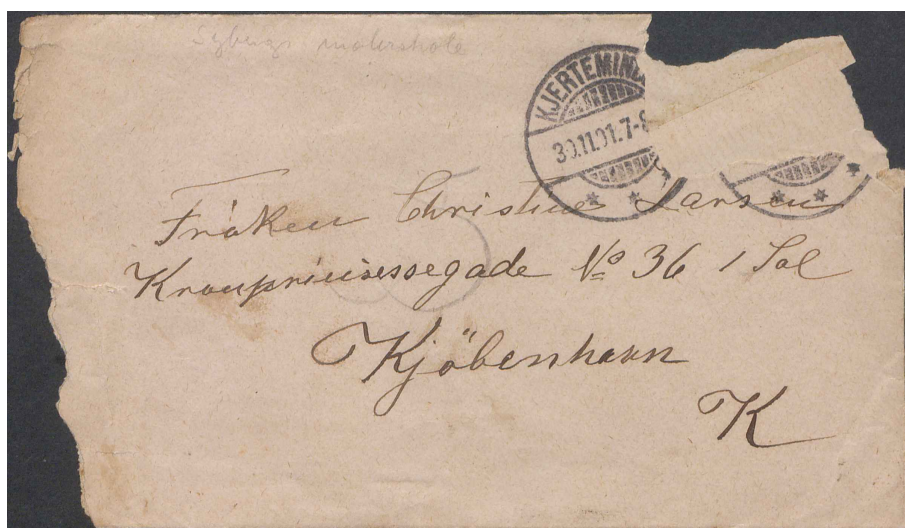 Sybergs malerskole
KJERTEMIND
30.11.01.7-8
Frøken Christine Larsen
Kronprinsessegade No 36 1 Sal
Kjöbenhavn
K